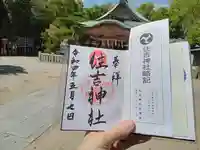 奉拝
住吉神社
令和四年五月七日
住吉神社略記